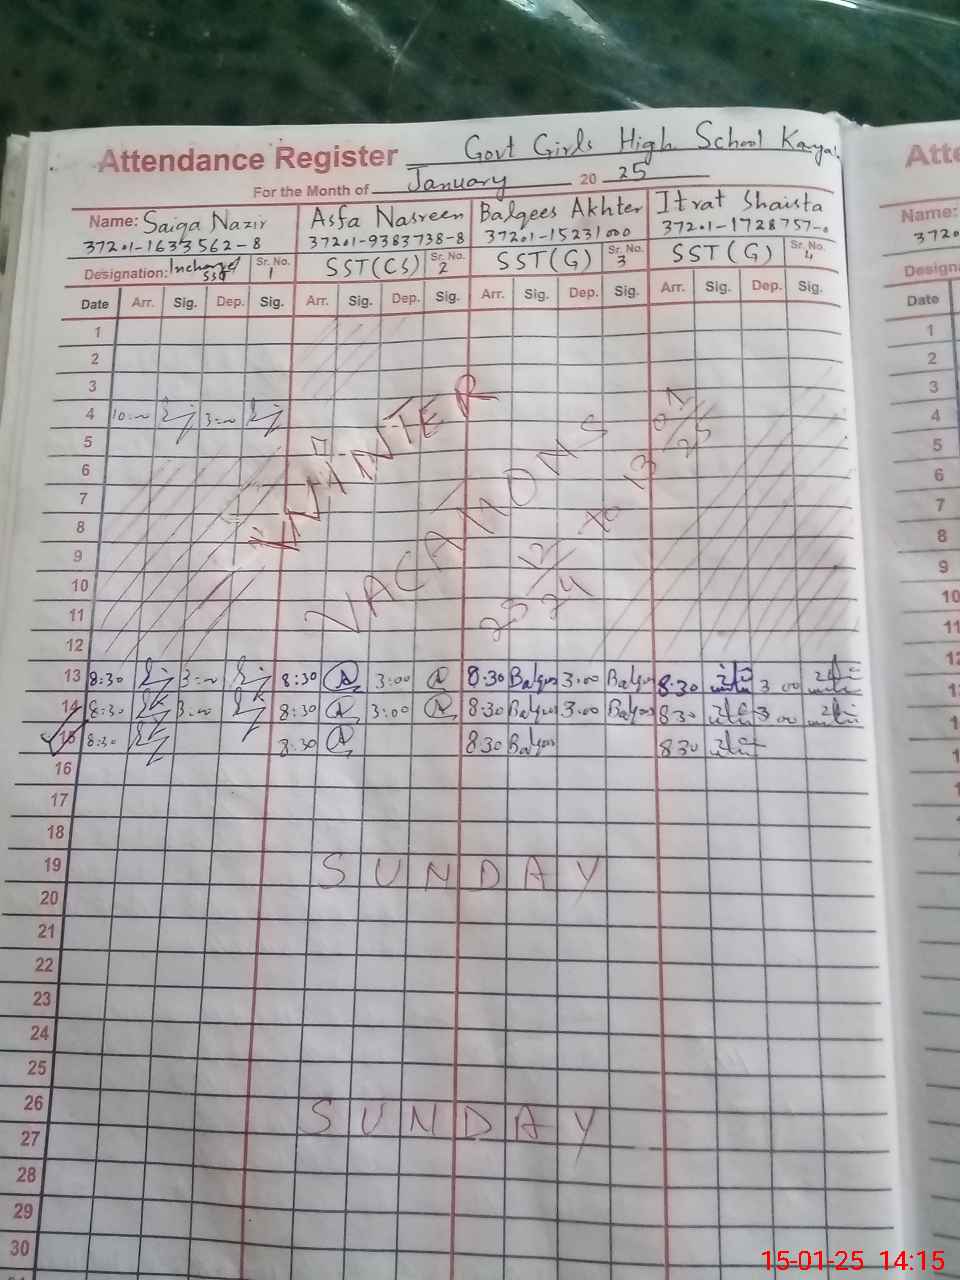 Attendance Register Govt Girls High School Karya
For the Month of January 20 25
Name: Saiqa Nazir Asfa Nasreen Balqees Akhter Itrat Shaista
37201-1633562-8 37201-9383738-8 37201-15231000 37201-1728757-0
Designation: Incharge SST Sr. No. 1 SST(CS) Sr. No. 2 SST(G) Sr. No. 3 SST(G) Sr. No. 4
Date Arr. Sig. Dep. Sig. Arr. Sig. Dep. Sig. Arr. Sig. Dep. Sig. Arr. Sig. Dep. Sig.
1
2
3
4 10:00 3:00
5
6
7
8
9
10
11
12
WINTER
VACATIONS
23 12/24 to 13 01/25
13 8:30 3:00 8:30 A 3:00 A 8:30 Balqees 3:00 Balqees 8:30 3 00
14 8:30 3:00 8:30 A 3:00 A 8:30 Balqees 3:00 Balqees 8 30 3 00
15 8:30 8:30 A 8 30 Balqees 8 30
16
17
18
19 SUNDAY
20
21
22
23
24
25
26 SUNDAY
27
28
29
30
Atte
Name:
3720
Design
Date
1
2
3
4
5
6
7
8
9
10
11
12
15-01-25 14:15